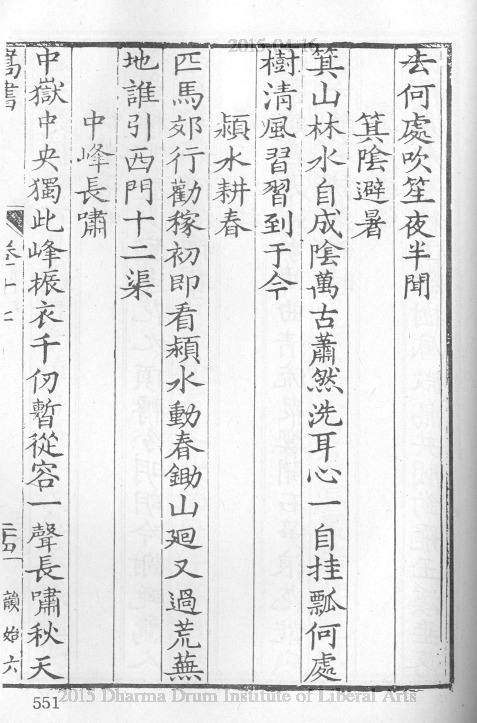 2015-04-16
去何處吹笙夜半聞
箕陰避暑
箕山林水自成陰萬古蕭然洗耳心一自挂瓢何處
樹清風習習到于今
潁水耕春
匹馬郊行勸稼初即看潁水動春鋤山迴又過荒蕪
地誰引西門十二渠
中峰長嘯
中嶽中央獨此峰振衣千仞暫從容一聲長嘯秋天
嵩書
卷十七
韻始六
551
2015 Dharma Drum Institute of Liberal Arts